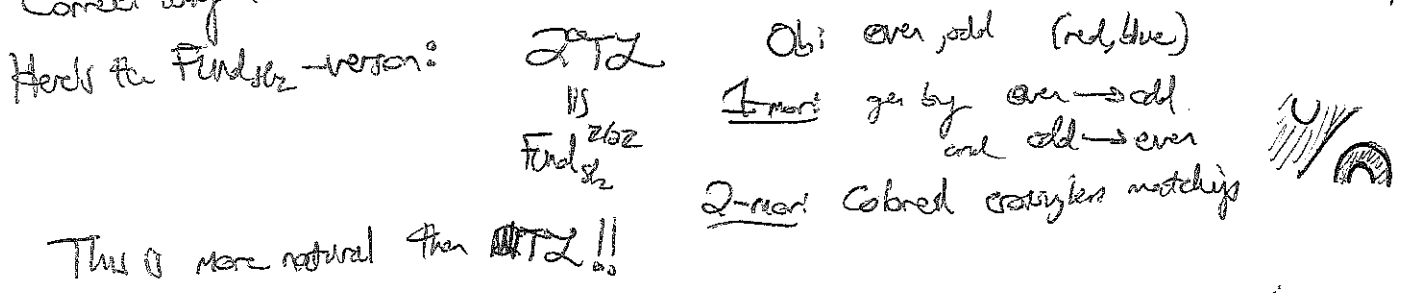 Correct way
Here's the Fund_sl2 -version: 2TL Ob: even, odd (red, blue)
≅ 1-mor: gen by even → odd
Fund_sl2^2/2Z and odd → even
2-mor: Colored crossingless matchings
This is more natural than TL!!